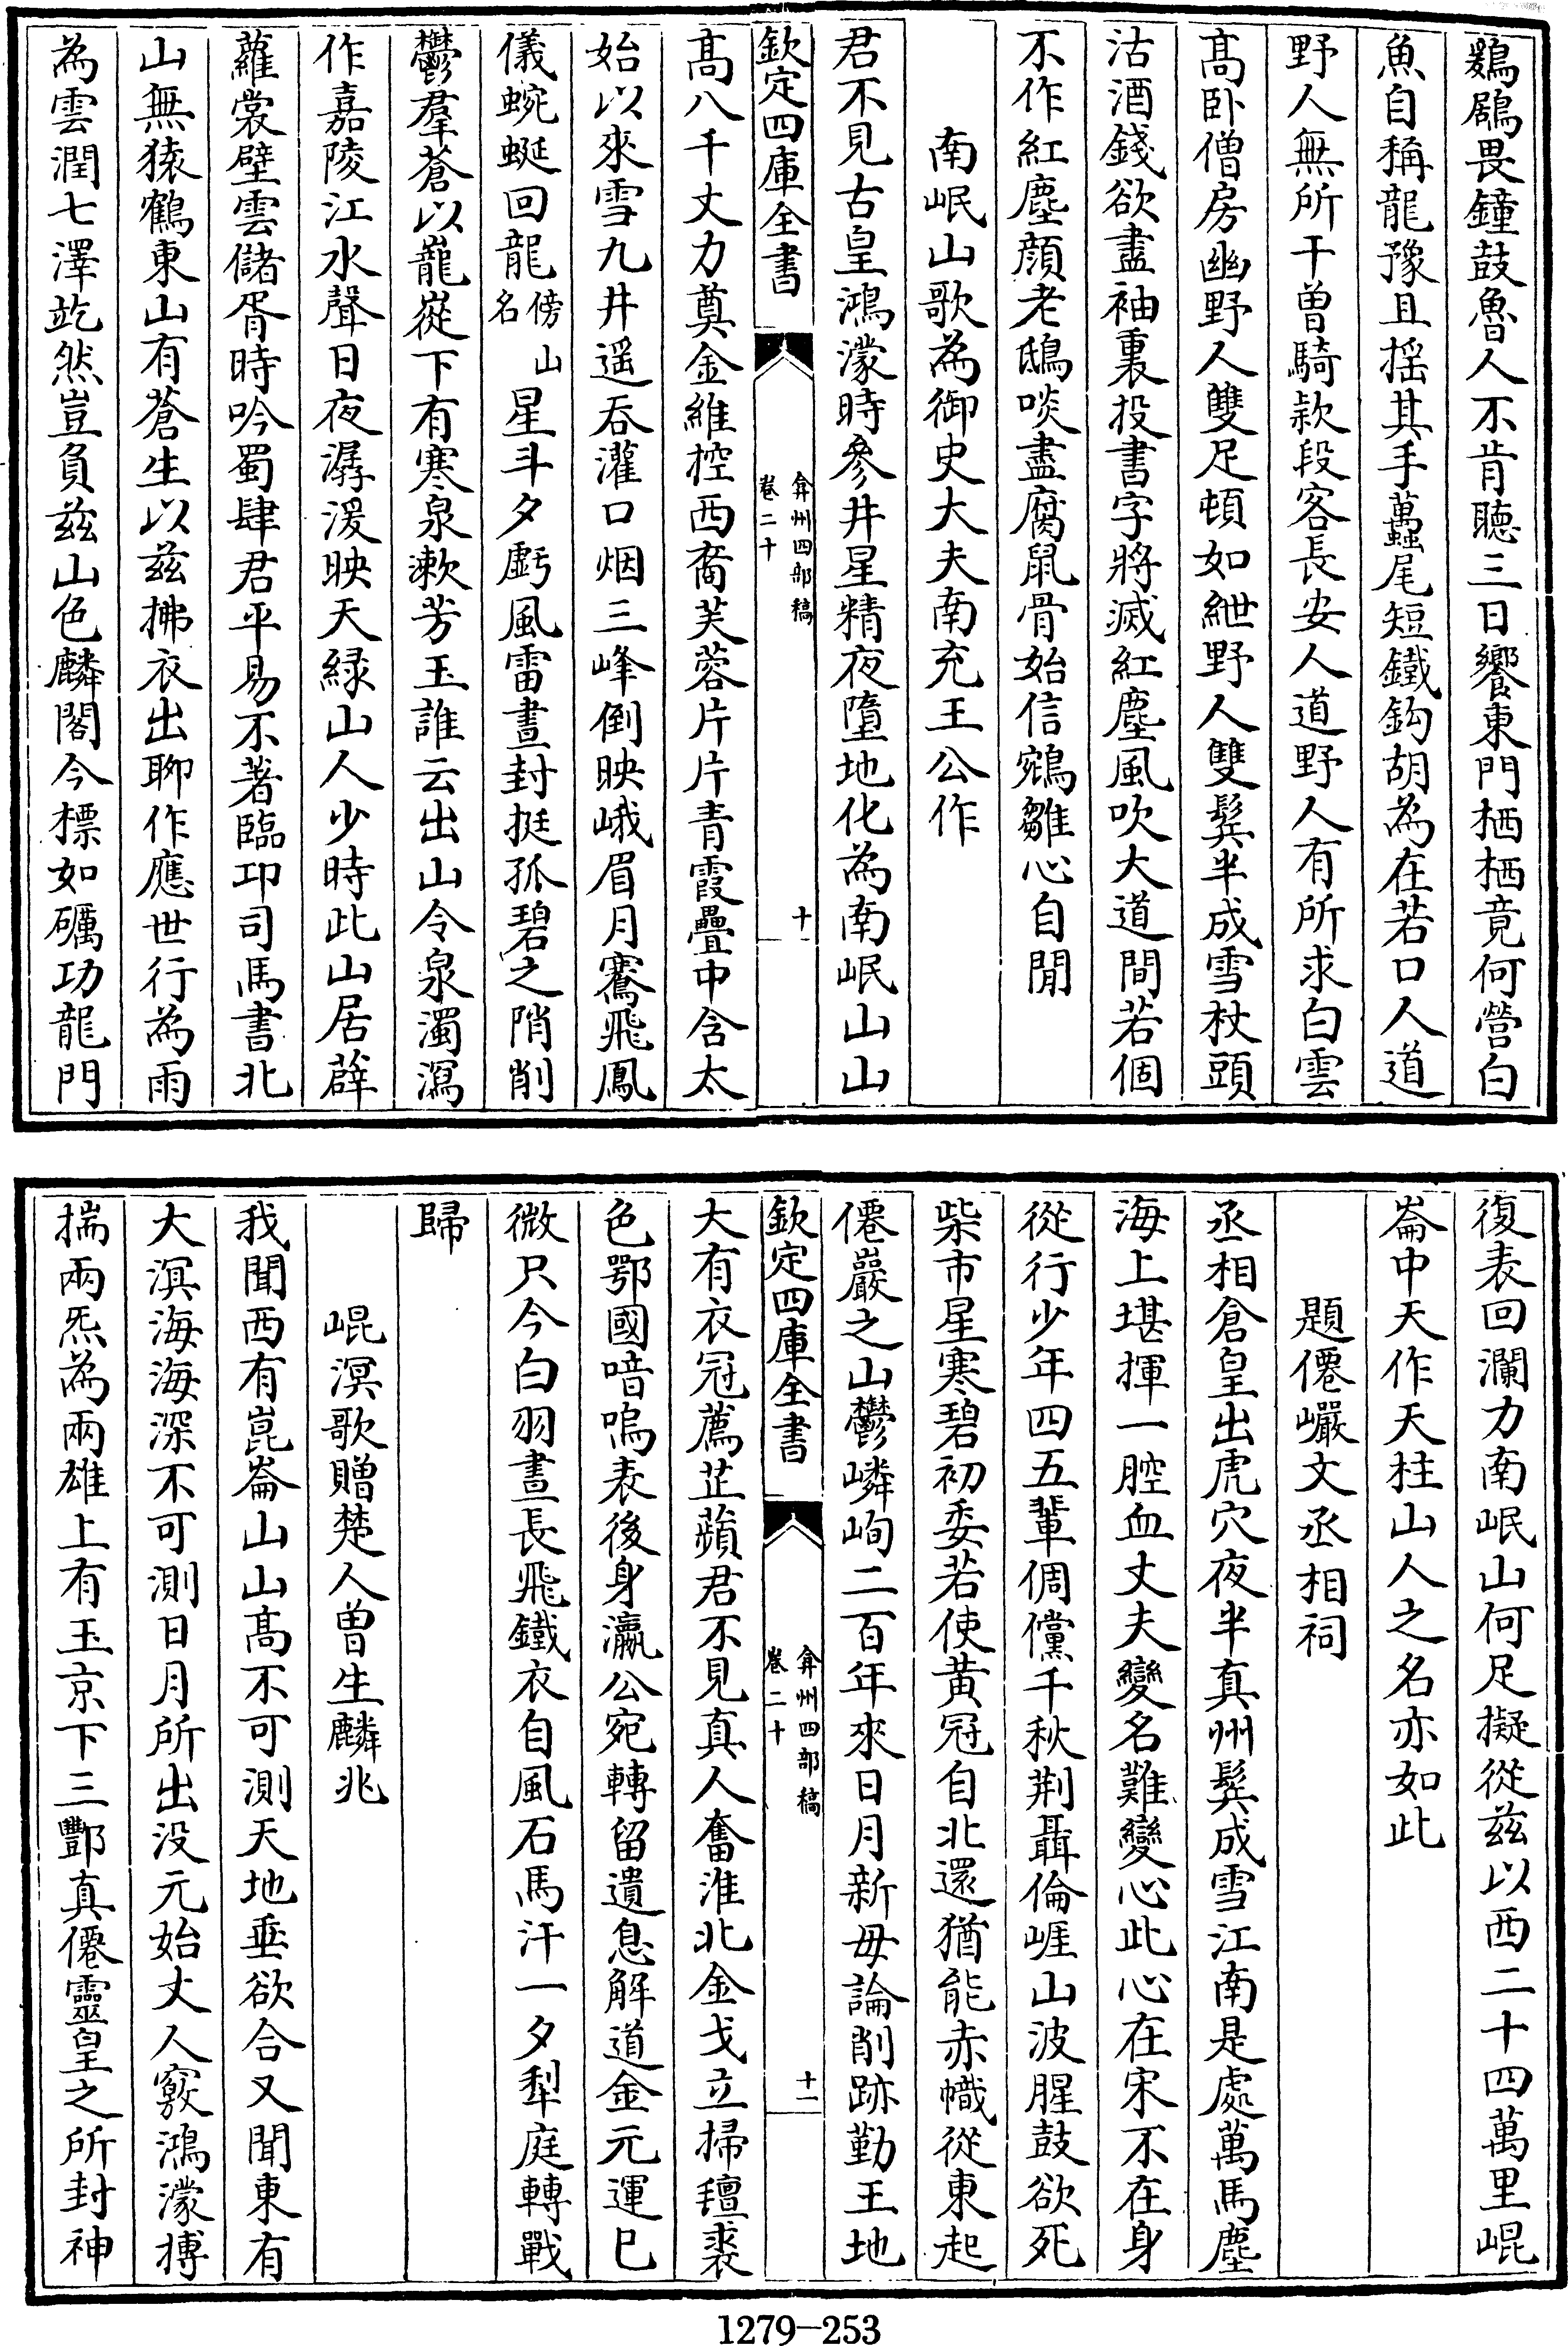 鷄鶋畏鐘鼓魯人不肯聽三日饗東門栖栖竟何營白
魚自稱龍豫且揺其手蠆尾短鐵鈎胡為在若口人道
野人無所干曽騎款段客長安人道野人有所求白雲
髙卧僧房幽野人雙足頓如紲野人雙鬂半成雪杖頭
沽酒錢欲盡袖裏投書字將滅紅塵風吹大道間若個
不作紅塵顔老鴟啖盡腐鼠骨始信鵷雛心自閒
南岷山歌為御史大夫南充王公作
君不見古皇鴻濛時參井星精夜墮地化為南岷山山
欽定四庫全書
弇州四部稿
卷二十
十
髙八千丈力奠金維控西裔芙蓉片片青霞疊中含太
始以來雪九井遥吞灌口烟三峰倒映峨眉月騫飛鳳
儀蜿蜒回龍傍山名星斗夕虧風雷晝封挺孤碧之陗削
鬱羣蒼以巃嵷下有寒泉漱芳玉誰云出山令泉濁瀉
作嘉陵江水聲日夜潺湲映天緑山人少時此山居薜
蘿裳壁雲儲胥時吟蜀肆君平易不著臨卭司馬書北
山無猿鶴東山有蒼生以兹拂衣出聊作應世行為雨
為雲潤七澤屹然豈負兹山色麟閣今標如礪功龍門
復表回瀾力南岷山何足擬從兹以西二十四萬里崐
崙中天作天柱山人之名亦如此
題僊巗文丞相祠
丞相倉皇出虎穴夜半真州鬂成雪江南是處萬馬塵
海上堪揮一腔血丈夫變名難變心此心在宋不在身
從行少年四五輩倜儻千秋荆聶倫崕山波腥鼓欲死
柴市星寒碧初委若使黄冠自北還猶能赤幟從東起
僊巖之山鬱嶙峋二百年來日月新毋論削跡勤王地
欽定四庫全書
弇州四部稿
卷二十
十一
大有衣冠薦芷蘋君不見真人奮淮北金戈立掃氊裘
色鄂國喑嗚表後身瀛公宛轉留遺息解道金元運已
微只今白羽晝長飛鐵衣自風石馬汗一夕犁庭轉戰
歸
崐溟歌贈楚人曽生麟兆
我聞西有崑崙山山髙不可測天地垂欲合又聞東有
大溟海海深不可測日月所出没元始丈人竅鴻濛摶
揣兩炁為兩雄上有玉京下三酆真僊靈皇之所封神
1279-253